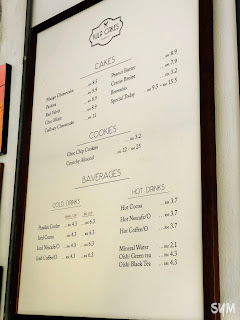 KULA CAKES
CAKES
Mango Cheesecake ... RM 8.5
Pavlova ... RM 9.9
Red Velvet ... RM 8.9
Choc Moist ... RM 8.9
Cadbury Cheesecake ... RM 11
Peanut Butter ... RM 8.9
Cookie Brulee ... RM 7.9
Brownies ... RM 3.2
Special Today ... RM 9.5 - 15.5
COOKIES
Choc Chip Cookies ... RM 3.2
Crunchy Almond ... RM 12 - 25
BAVERAGES
COLD DRINKS
Pandan Cooler ... RM 4.3 ... RM 6.3
Iced Cocoa ... RM 4.3 ... RM 6.3
Iced Nescafe/O ... RM 4.3 ... RM 6.3
Iced Coffee/O ... RM 4.3 ... RM 6.3
HOT DRINKS
Hot Cocoa ... RM 3.7
Hot Nescafe/O ... RM 3.7
Hot Coffee/O ... RM 3.7
Mineral Water ... RM 2.1
Oishi Green tea ... RM 4.3
Oishi Black Tea ... RM 4.3